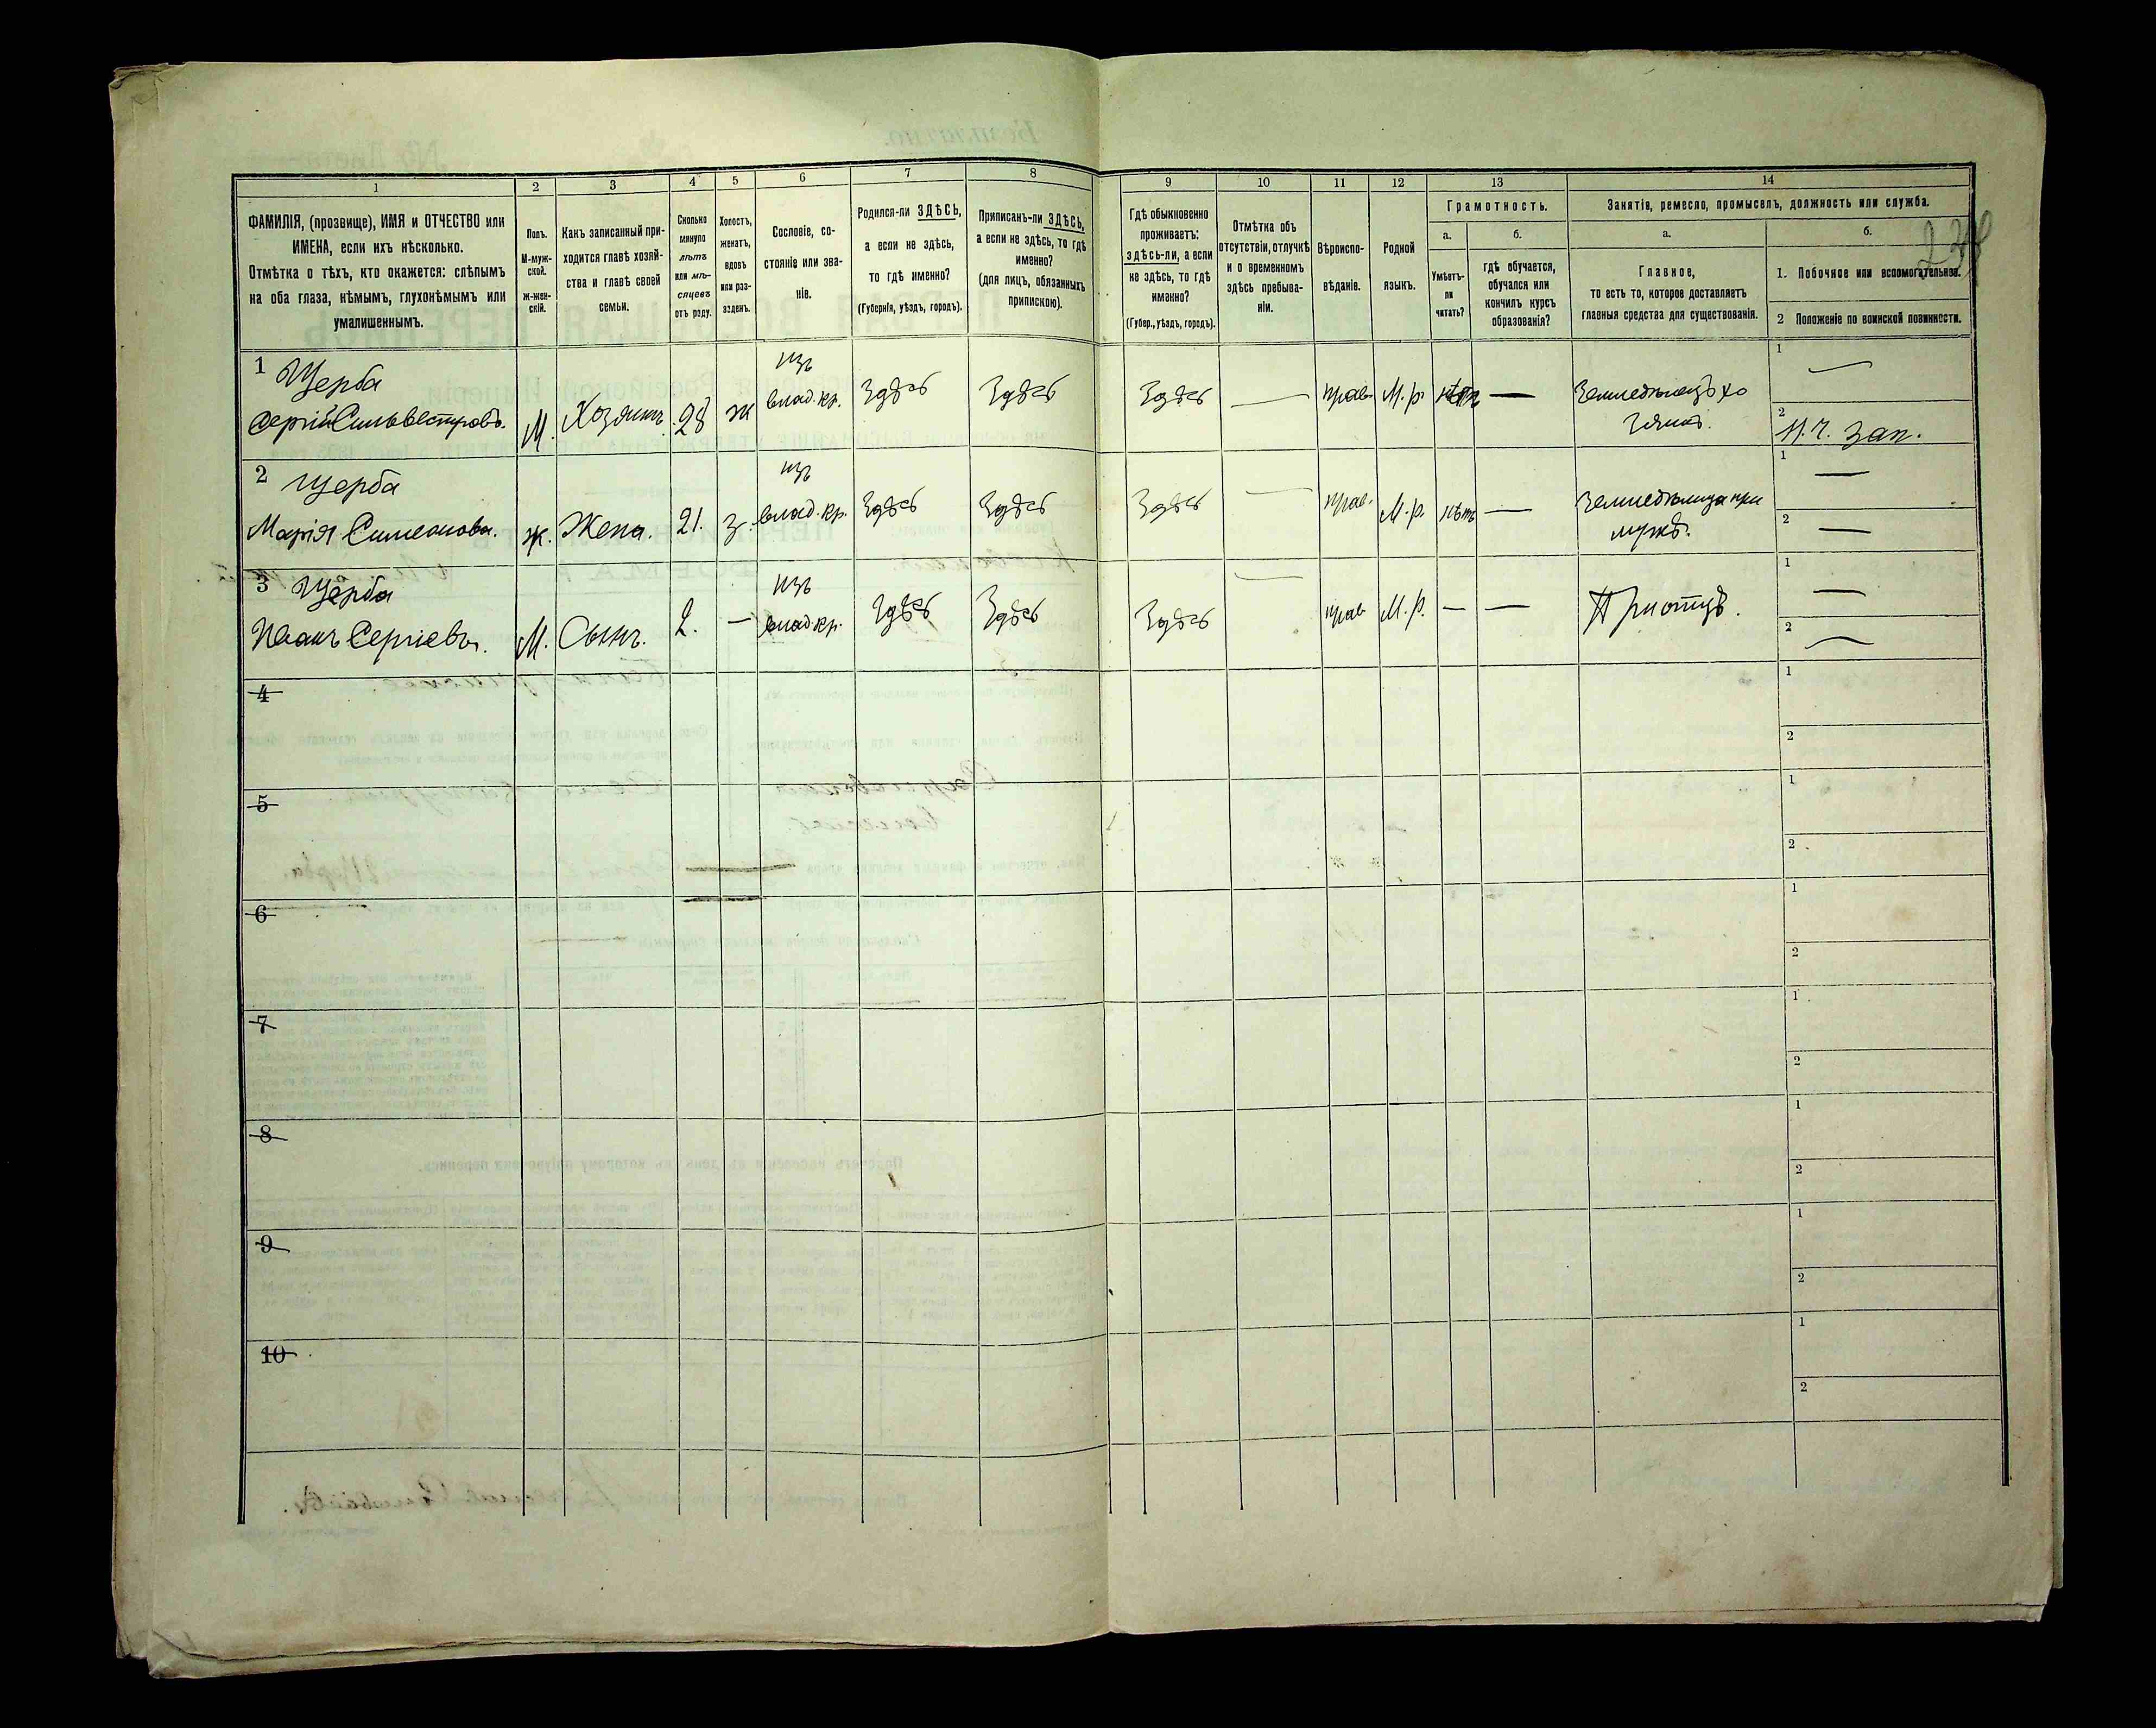 1
2
3
4
5
6
7
8
9
10
11
12
13
14
ФАМИЛІЯ, (прозвище), ИМЯ и ОТЧЕСТВО или
ИМЕНА, если ихъ нѣсколько.
Отмѣтка о тѣхъ, кто окажется: слѣпымъ
на оба глаза, нѣмымъ, глухонѣмымъ или
умалишеннымъ.
Полъ.
М-муж-
ской.
ж-жен-
скій.
Какъ записанный при-
ходится главѣ хозяй-
ства и главѣ своей
семьи.
Сколько
минуло
лѣтъ
или мѣ-
сяцевъ
отъ роду.
Холостъ,
женатъ,
вдовъ
или раз-
веденъ.
Сословіе, со-
стояніе или зва-
ніе.
Родился-ли ЗДѢСЬ,
а если не здѣсь,
то гдѣ именно?
(Губернія, уѣздъ, городъ).
Приписанъ-ли ЗДѢСЬ,
а если не здѣсь, то гдѣ
именно?
(для лицъ, обязанныхъ
припискою).
Гдѣ обыкновенно
проживаетъ:
здѣсь-ли, а если
не здѣсь, то гдѣ
именно?
(Губер., уѣздъ, городъ).
Отмѣтка объ
отсутствіи, отлучкѣ
и о временномъ
здѣсь пребыва-
ніи.
Вѣроиспо-
вѣданіе.
Родной
языкъ.
Грамотность.
а.
б.
Умѣетъ-
ли
читать?
гдѣ обучается,
обучался или
кончилъ курсъ
образованія?
Занятія, ремесло, промыселъ, должность или служба.
а.
б.
Главное,
то есть то, которое доставляетъ
главныя средства для существованія.
1. Побочное или вспомогательное.
2 Положеніе по воинской повинности.
1 Щерба
Сергій Сильвестровъ.
М.
Хозяинъ.
28
ж
изъ
влад. кр.
Здѣсь
Здѣсь
Здѣсь
—
прав.
М. р.
нѣтъ
—
Земледѣлецъ хо
зяинъ.
1
—
2
Н. Ч. зап.
2 Щерба
Марія Симеонова.
ж.
Жена.
21.
З.
изъ
влад. кр.
Здѣсь
Здѣсь
Здѣсь
—
прав.
М. р.
нѣтъ
—
Земледѣлица при
мужѣ.
1
—
2
—
3 Щерба
Иванъ Сергіевъ.
М.
Сынъ.
2.
—
изъ
влад кр.
Здѣсь
Здѣсь
Здѣсь
—
прав
М. р.
—
—
При отцѣ.
1
—
2
—
4
1
2
5
1
2
6
1
2
7
1
2
8
1
2
9
1
2
10
1
2